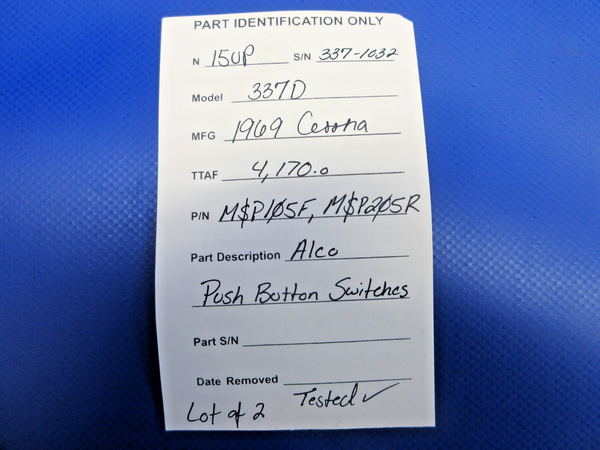 PART IDENTIFICATION ONLY
N 15UP S/N 337-1032
Model 337D
MFG 1969 Cessna
TTAF 4,170.0
P/N M$P1Ø5F, M$P2Ø5R
Part Description Alco
Push Button Switches
Part S/N
Date Removed
Lot of 2 Tested ✓